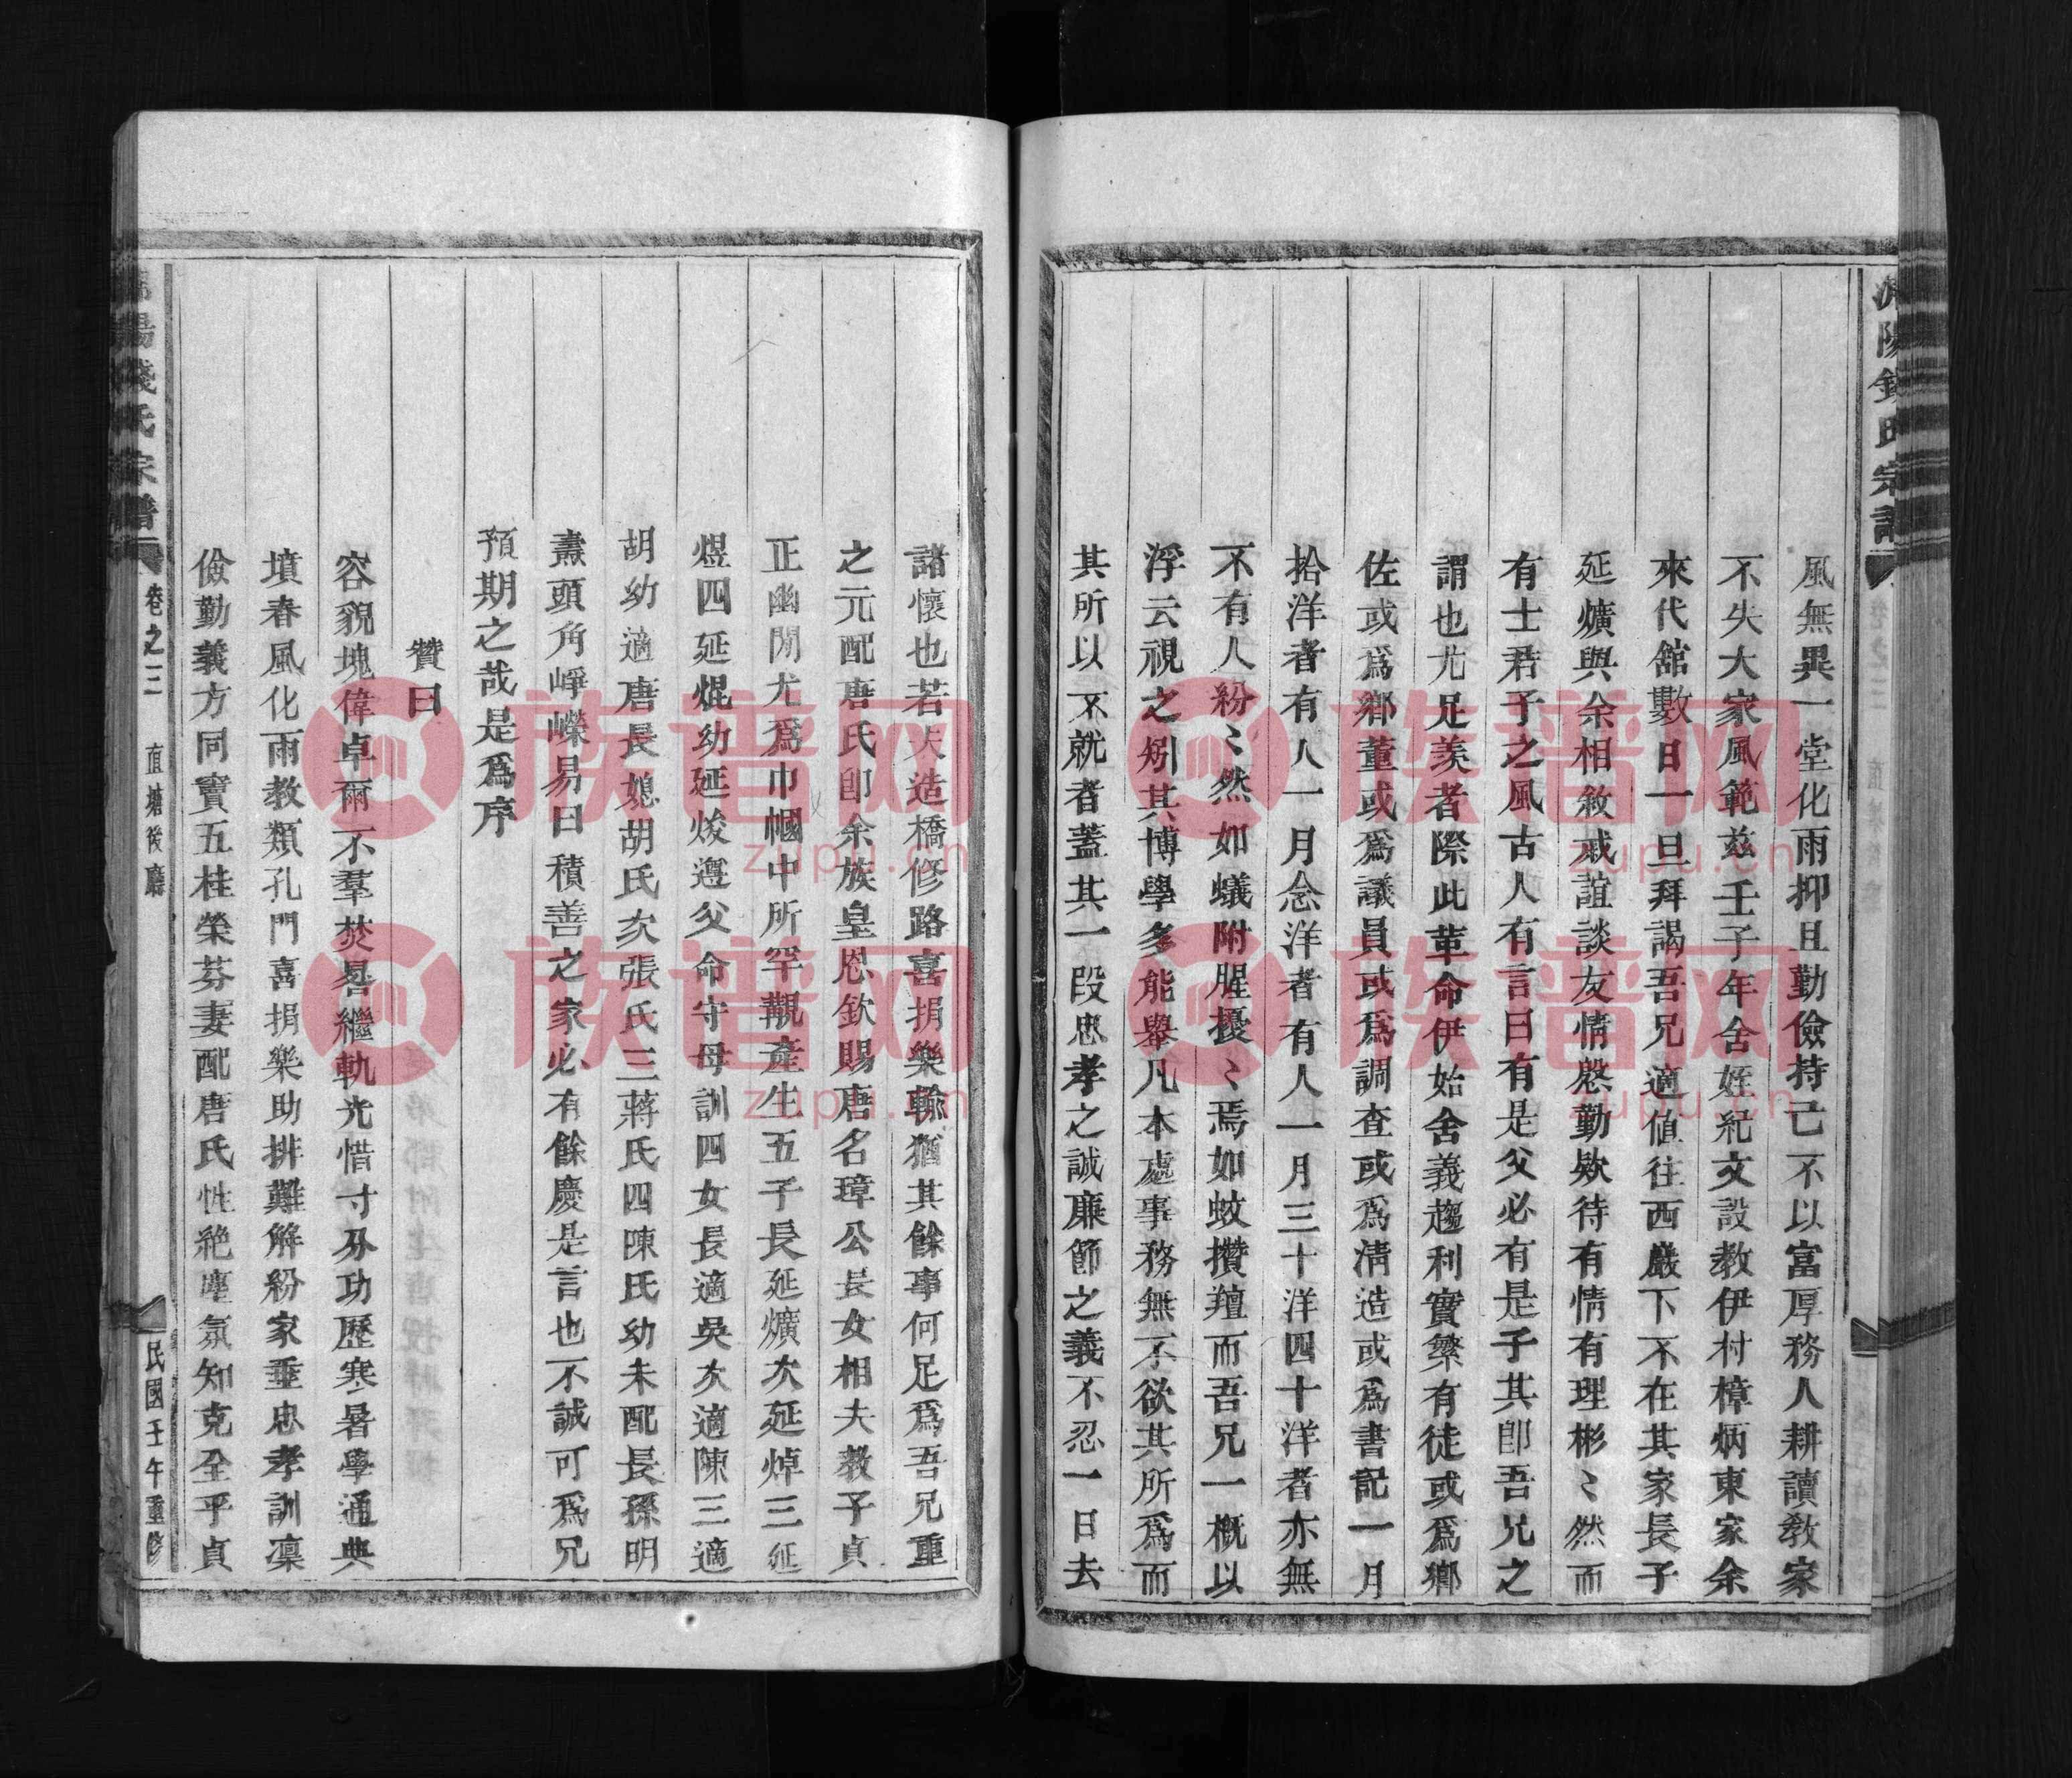 風無異一堂化雨抑且勤儉持己不以富厚務人耕讀教家
不失大家風範茲壬子年舍姪紀文設教伊村樟炳東家余
來代舘數日一旦拜謁吾兄適值往西巖下不在其家長子
延爌與余相敘戚誼談友情慇勤欵待有情有理彬〻然而
有士君子之風古人有言曰有是父必有是子其卽吾兄之
謂也尤足羨者際此革命伊始舍義趨利實繁有徒或爲鄉
佐或爲鄉董或爲議員或爲調查或爲淸造或爲書記一月
拾洋者有人一月念洋者有人一月三十洋四十洋者亦無
不有人紛〻然如蟻附腥擾〻焉如蚊攢羶而吾兄一槪以
浮云視之矧其博學多能舉凡本處事務無不欲其所爲而
其所以不就者蓋其一段忠孝之誠廉節之義不忍一日去
諸懷也若夫造橋修路喜捐樂輸猶其餘事何足爲吾兄重
之元配唐氏卽余族皇恩欽賜唐名璋公長女相夫教子貞
正幽閒尤爲巾幗中所罕覯產生五子長延爌次延焯三延
煜四延焜幼延焌遵父命守母訓四女長適吳次適陳三適
胡幼適唐長媳胡氏次張氏三蔣氏四陳氏幼未配長孫明
燾頭角崢嶸易曰積善之家必有餘慶是言也不誠可爲兄
預期之哉是爲序
贊曰
容貌塊偉卓爾不羣焚晷繼軌光惜寸分功歷寒暑學通典
墳春風化雨教類孔門喜捐樂助排難解紛家垂忠孝訓凜
儉勤義方同竇五桂榮芬妻配唐氏性絶塵氛知克全乎貞
卷之三
直塘後廳
民國壬午重修